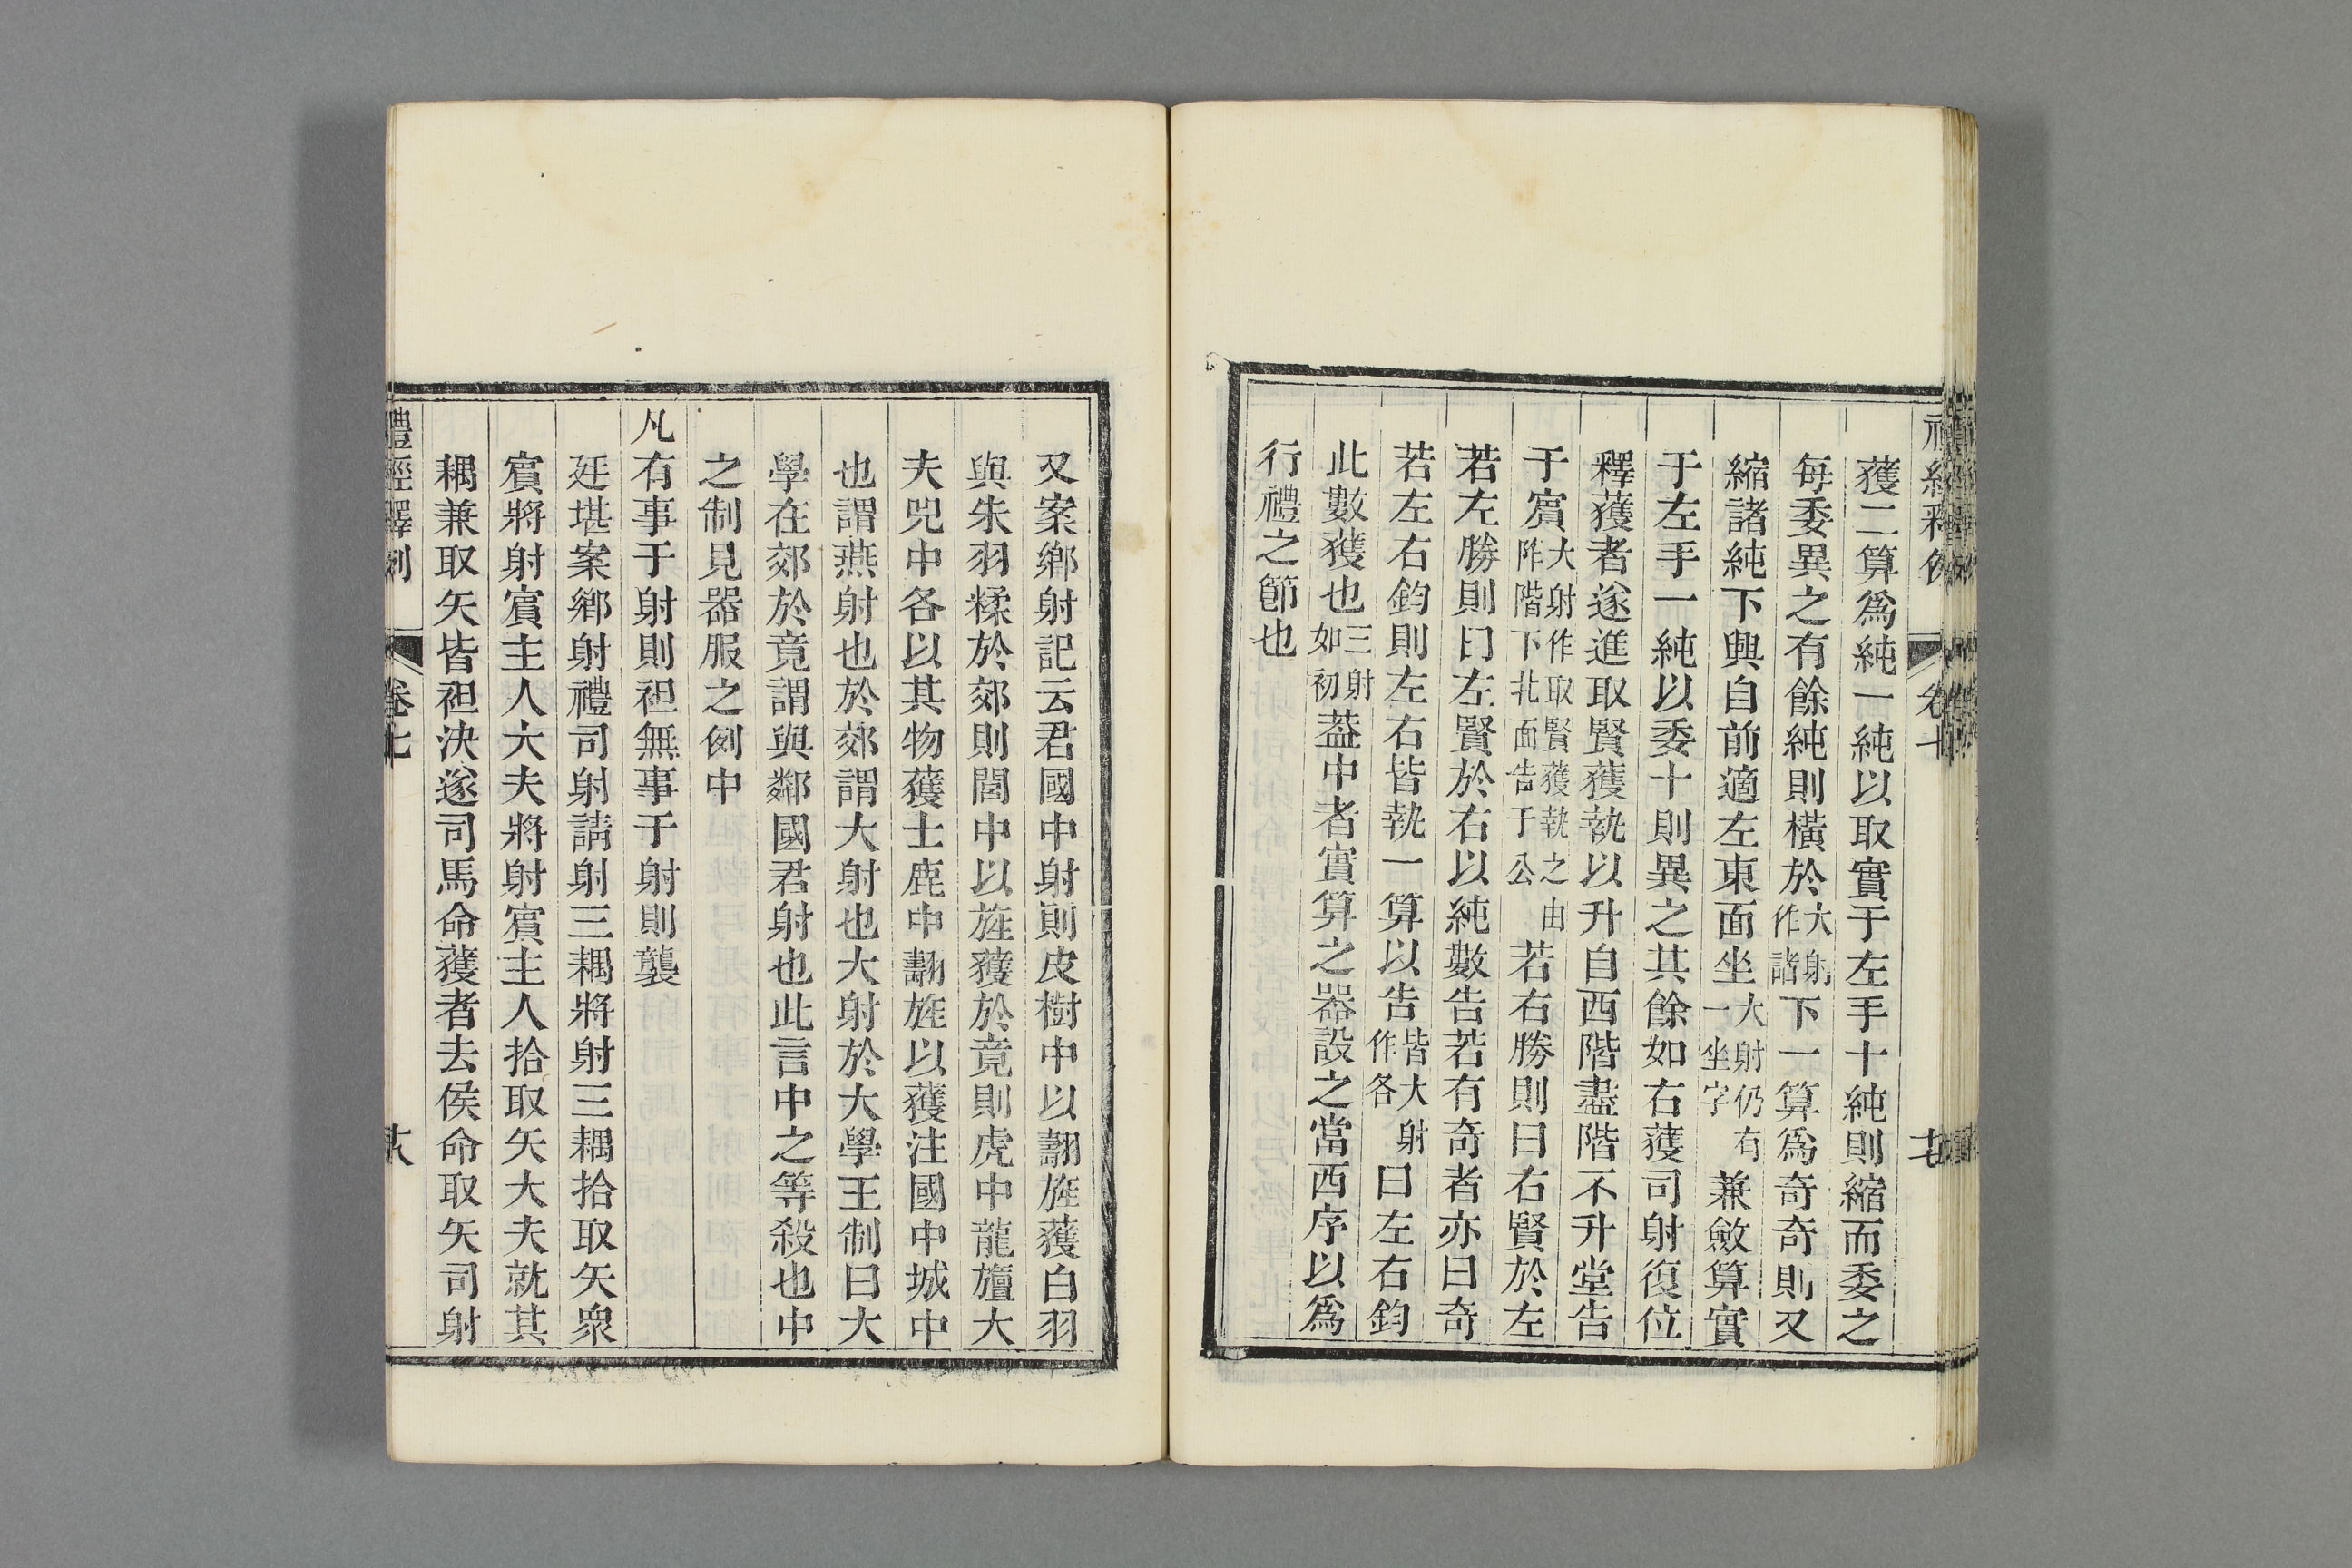 獲二算爲純一純以取實于左手十純則縮而委之
每委異之有餘純則橫於大射作諸下一算爲奇奇則又
縮諸純下興自前適左東面坐大射仍有一坐字兼斂算實
于左手一純以委十則異之其餘如右獲司射復位
釋獲者遂進取賢獲執以升自西階盡階不升堂告
于賓大射作取賢獲執之由阼階下北面告于公若右勝則曰右賢於左
若左勝則曰左賢於右以純數告若有奇者亦曰奇
若左右鈞則左右皆執一算以告皆大射作各曰左右鈞
此數獲也三射如初葢中者實算之器設之當西序以爲
行禮之節也
又案鄉射記云君國中射則皮樹中以翿旌獲白羽
與朱羽糅於郊則閭中以旌獲於竟則虎中龍旜大
夫兕中各以其物獲士鹿中翿旌以獲注國中城中
也謂燕射也於郊謂大射也大射於大學王制曰大
學在郊於竟謂與鄰國君射也此言中之等殺也中
之制見器服之例中
凡有事于射則袒無事于射則襲
廷堪案鄉射禮司射請射三耦將射三耦拾取矢衆
賓將射賓主人大夫將射賓主人拾取矢大夫就其
耦兼取矢皆袒決遂司馬命獲者去侯命取矢司射
禮經釋例
卷七